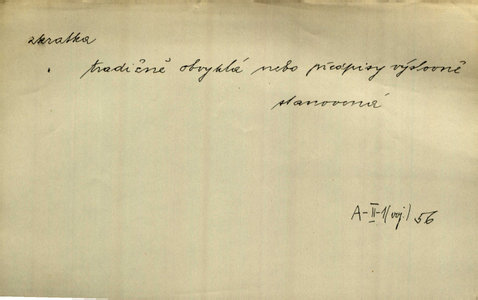 zkratka
tradičně obvyklá nebo předpisy výslovně
stanovená
A-II-1(voj.) 56